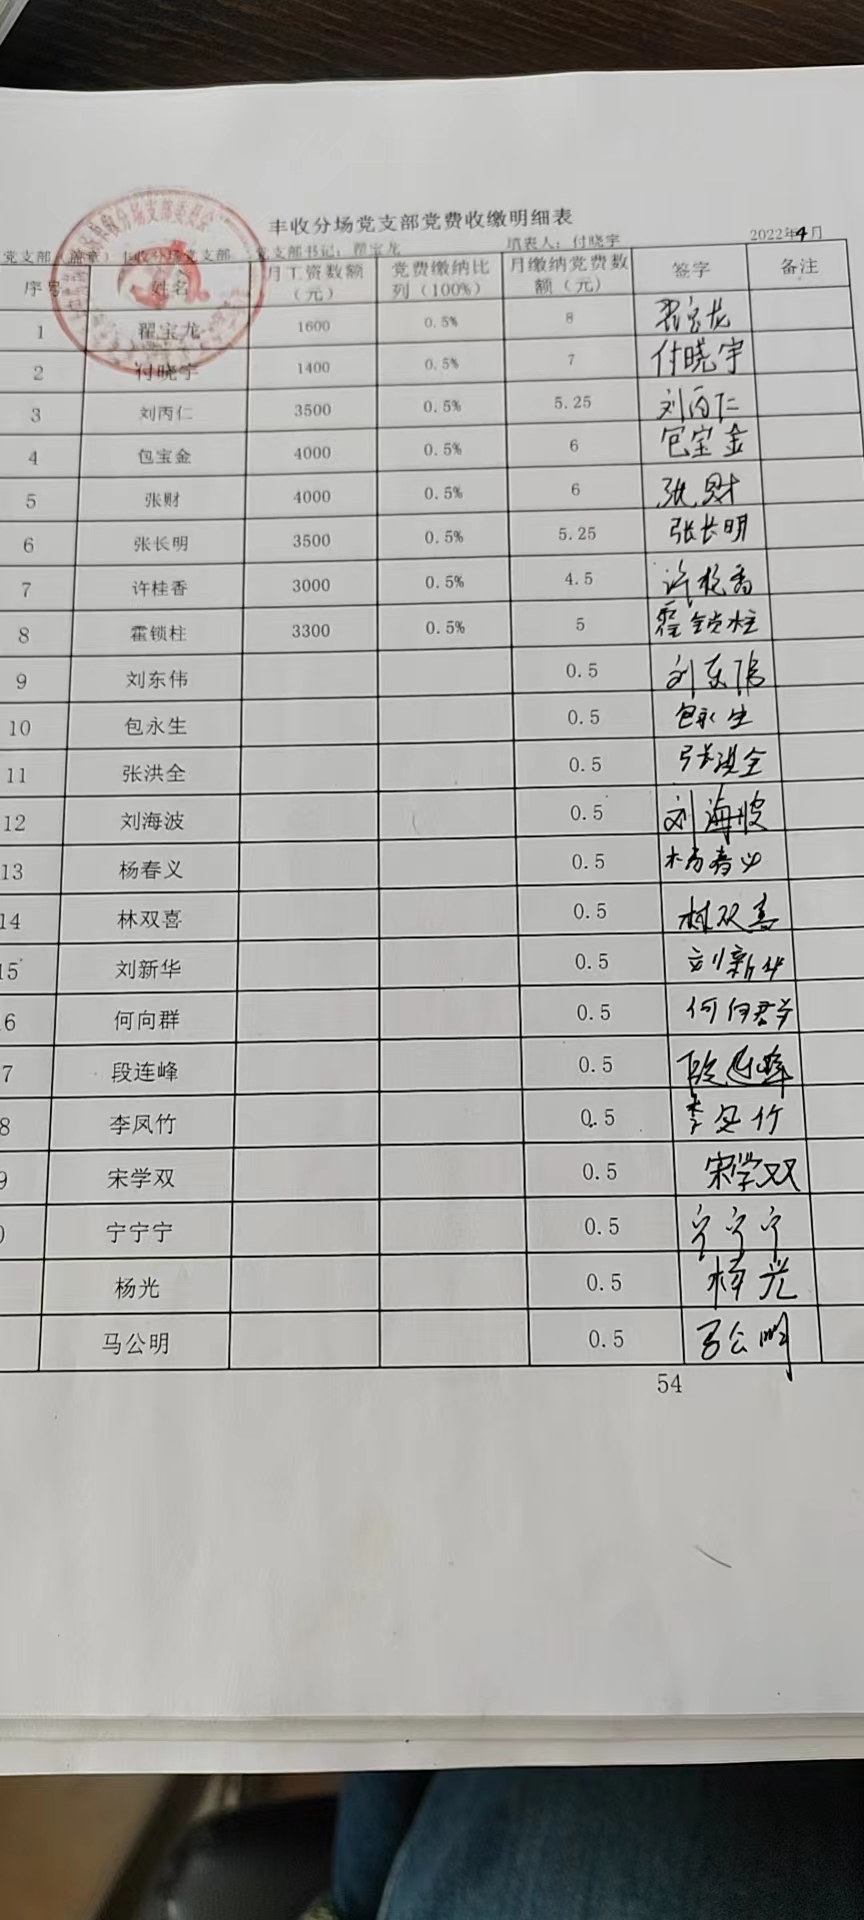 丰收分场党支部党费收缴明细表
党支部（盖章）丰收分场党支部 党支部书记：翟宝龙 填表人：付晓宇 2022年4月
序号 姓名 月工资数额（元） 党费缴纳比列（100%） 月缴纳党费数额（元） 签字 备注
1 翟宝龙 1600 0.5% 8 翟宝龙
2 付晓宇 1400 0.5% 7 付晓宇
3 刘丙仁 3500 0.5% 5.25 刘丙仁
4 包宝金 4000 0.5% 6 包宝金
5 张财 4000 0.5% 6 张财
6 张长明 3500 0.5% 5.25 张长明
7 许桂香 3000 0.5% 4.5 许桂香
8 霍锁柱 3300 0.5% 5 霍锁柱
9 刘东伟 0.5 刘东伟
10 包永生 0.5 包永生
11 张洪全 0.5 张洪全
12 刘海波 0.5 刘海波
13 杨春义 0.5 杨春义
14 林双喜 0.5 林双喜
15 刘新华 0.5 刘新华
6 何向群 0.5 何向群
7 段连峰 0.5 段连峰
8 李凤竹 0.5 李凤竹
9 宋学双 0.5 宋学双
0 宁宁宁 0.5 宁宁宁
杨光 0.5 杨光
马公明 0.5 马公明
54